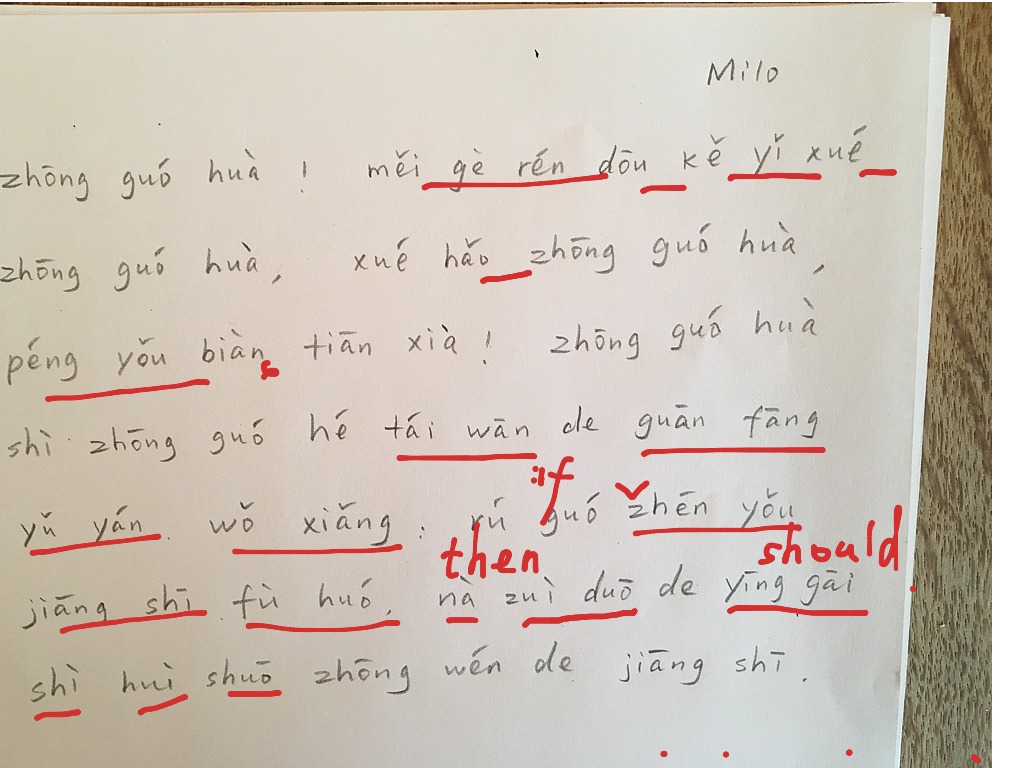 Milo
zhōng guó huà ! měi gè rén dōu kě yǐ xué
zhōng guó huà, xué hǎo zhōng guó huà,
péng yǒu biàn tiān xià! zhōng guó huà
shì zhōng guó hé tái wān de guān fāng
if
yǔ yán. wǒ xiǎng: rú guó zhēn yǒu
then should
jiāng shī fù huó. nà zuì duō de yīng gāi
shì huì shuō zhōng wén de jiāng shī.